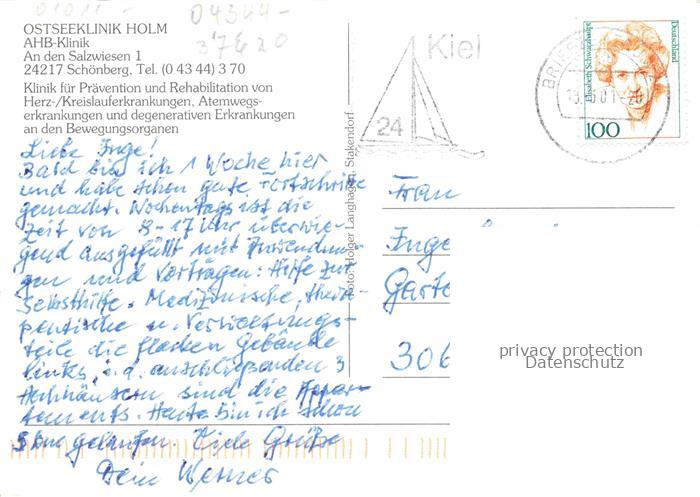 04344-
37620
OSTSEEKLINIK HOLM
AHB-Klinik
An den Salzwiesen 1
24217 Schönberg, Tel. (0 43 44) 3 70
Klinik für Prävention und Rehabilitation von
Herz-/Kreislauferkrankungen, Atemwegs-
erkrankungen und degenerativen Erkrankungen
an den Bewegungsorganen
Liebe Inge!
Bald bin ich 1 Woche hier
und habe schon gute Fortschritte
gemacht. Wochentags ist die
Zeit von 8-17 Uhr überwie-
gend ausgefüllt mit Anwendun-
gen und Vorträgen: Hilfe zur
Selbsthilfe. Medizinische, thera-
peutische u. Verwaltungs-
teile die flachen Gebäude
links, i.d. anschließenden 3
Hochhäusern sind die Appar-
tements. Heute bin ich schon
5 km gelaufen. Viele Grüße
Dein Werner
Foto: Holger Langhagen, Stakendorf
Kiel
24
BRIEF
Elisabeth Schwarzhaupt
Deutschland
100
Frau
Inge
Garte
306
privacy protection
Datenschutz